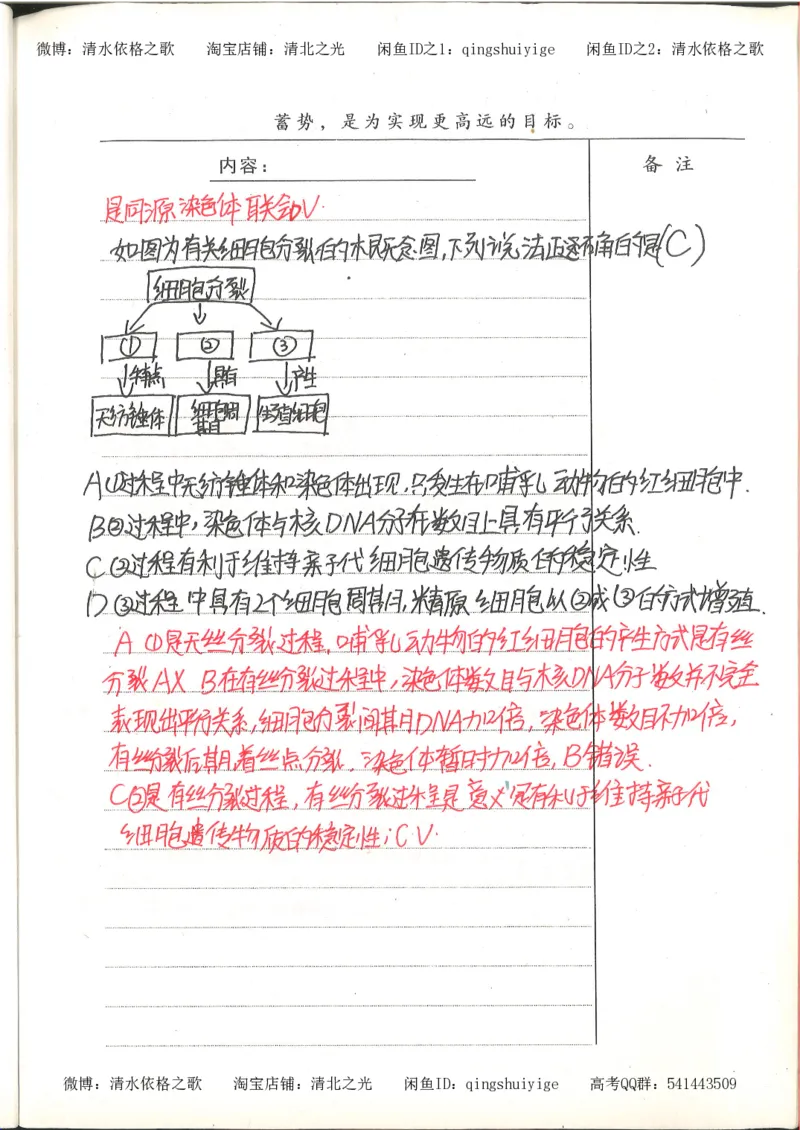 微博：清水依格之歌 淘宝店铺：清北之光 闲鱼ID之1：qingshuiyige 闲鱼ID之2：清水依格之歌
蓄势，是为实现更高远的目标。
内容：
备 注
是同源染色体联会DV.
如图为有关细胞分裂的概念图,下列说法正确的是(C)
细胞分裂
① ② ③
特点 具有 产生
无纺锤体 细胞周期 生殖细胞
A①过程中无纺锤体和染色体出现,只发生在哺乳动物的红细胞中.
B②过程中,染色体与核DNA分子在数目上具有平行关系.
C②过程有利于维持亲子代细胞遗传物质的稳定性
D③过程中具有2个细胞周期,精原细胞以②或③的方式增殖.
A ①是无丝分裂过程,哺乳动物的红细胞的产生方式是有丝
分裂AX B在有丝分裂过程中,染色体数目与核DNA分子数并不完全
表现出平行关系,细胞分裂间期DNA加倍,染色体数目不加倍,
有丝分裂后期着丝点分裂,染色体暂时加倍,B错误.
C②是有丝分裂过程,有丝分裂过程是意义是有利于维持亲子代
细胞遗传物质的稳定性;CV.
微博：清水依格之歌 淘宝店铺：清北之光 闲鱼ID：qingshuiyige 高考QQ群：541443509